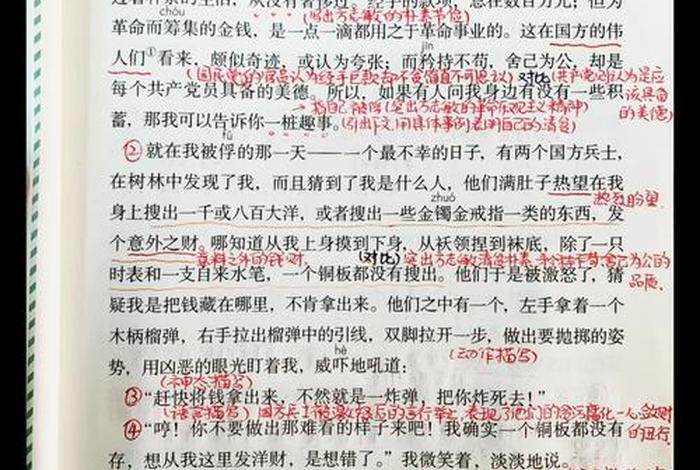 过着朴素的生活，从没有奢侈过。经手的款项，总在数百万元；但为
（写出方志敏的朴素节俭）
chóu
革命而筹集的金钱，是一点一滴都用之于革命事业的。这在国方的伟
jīn
人们①看来，颇似奇迹，或认为夸张；而矜持不苟，舍己为公，却是
（国民党的官员认为经手巨款却不贪简直不可思议）对比（共产党员认为是应该具备的美德）
每个共产党员具备的美德。所以，如果有人问我身边有没有一些积
→指自己被俘（突出方志敏的革命乐观主义精神）
蓄，那我可以告诉你一桩趣事。（引出下文，用具体事例表明自己的清贫）
fú
②就在我被俘的那一天——一个最不幸的日子，有两个国方兵士，
在树林中发现了我，而且猜到了我是什么人，他们满肚子热望在我
热烈盼望
zhuó
身上搜出一千或八百大洋，或者搜出一些金镯金戒指一类的东西，发
个意外之财。哪知道从我上身摸到下身，从袄领捏到袜底，除了一只
意料之外的钱财
（对比）突出方志敏清贫朴素、矜持不苟舍己为公的品质。
时表和一支自来水笔，一个铜板都没有搜出。他们于是被激怒了，猜
疑我是把钱藏在哪里，不肯拿出来。他们之中有一个，左手拿着一个
木柄榴弹，右手拉出榴弹中的引线，双脚拉开一步，做出要抛掷的姿
（动作描写）
hè
势，用凶恶的眼光盯着我，威吓地吼道：
（神态描写）
③“赶快将钱拿出来，不然就是一炸弹，把你炸死去！”
（语言描写）国方兵士被激怒后的言行举止，表现了他们的贪污腐化
④“哼！你不要做出那难看的样子来吧！我确实一个铜板都没有
存，想从我这里发洋财，是想错了。”我微笑着，淡淡地说。